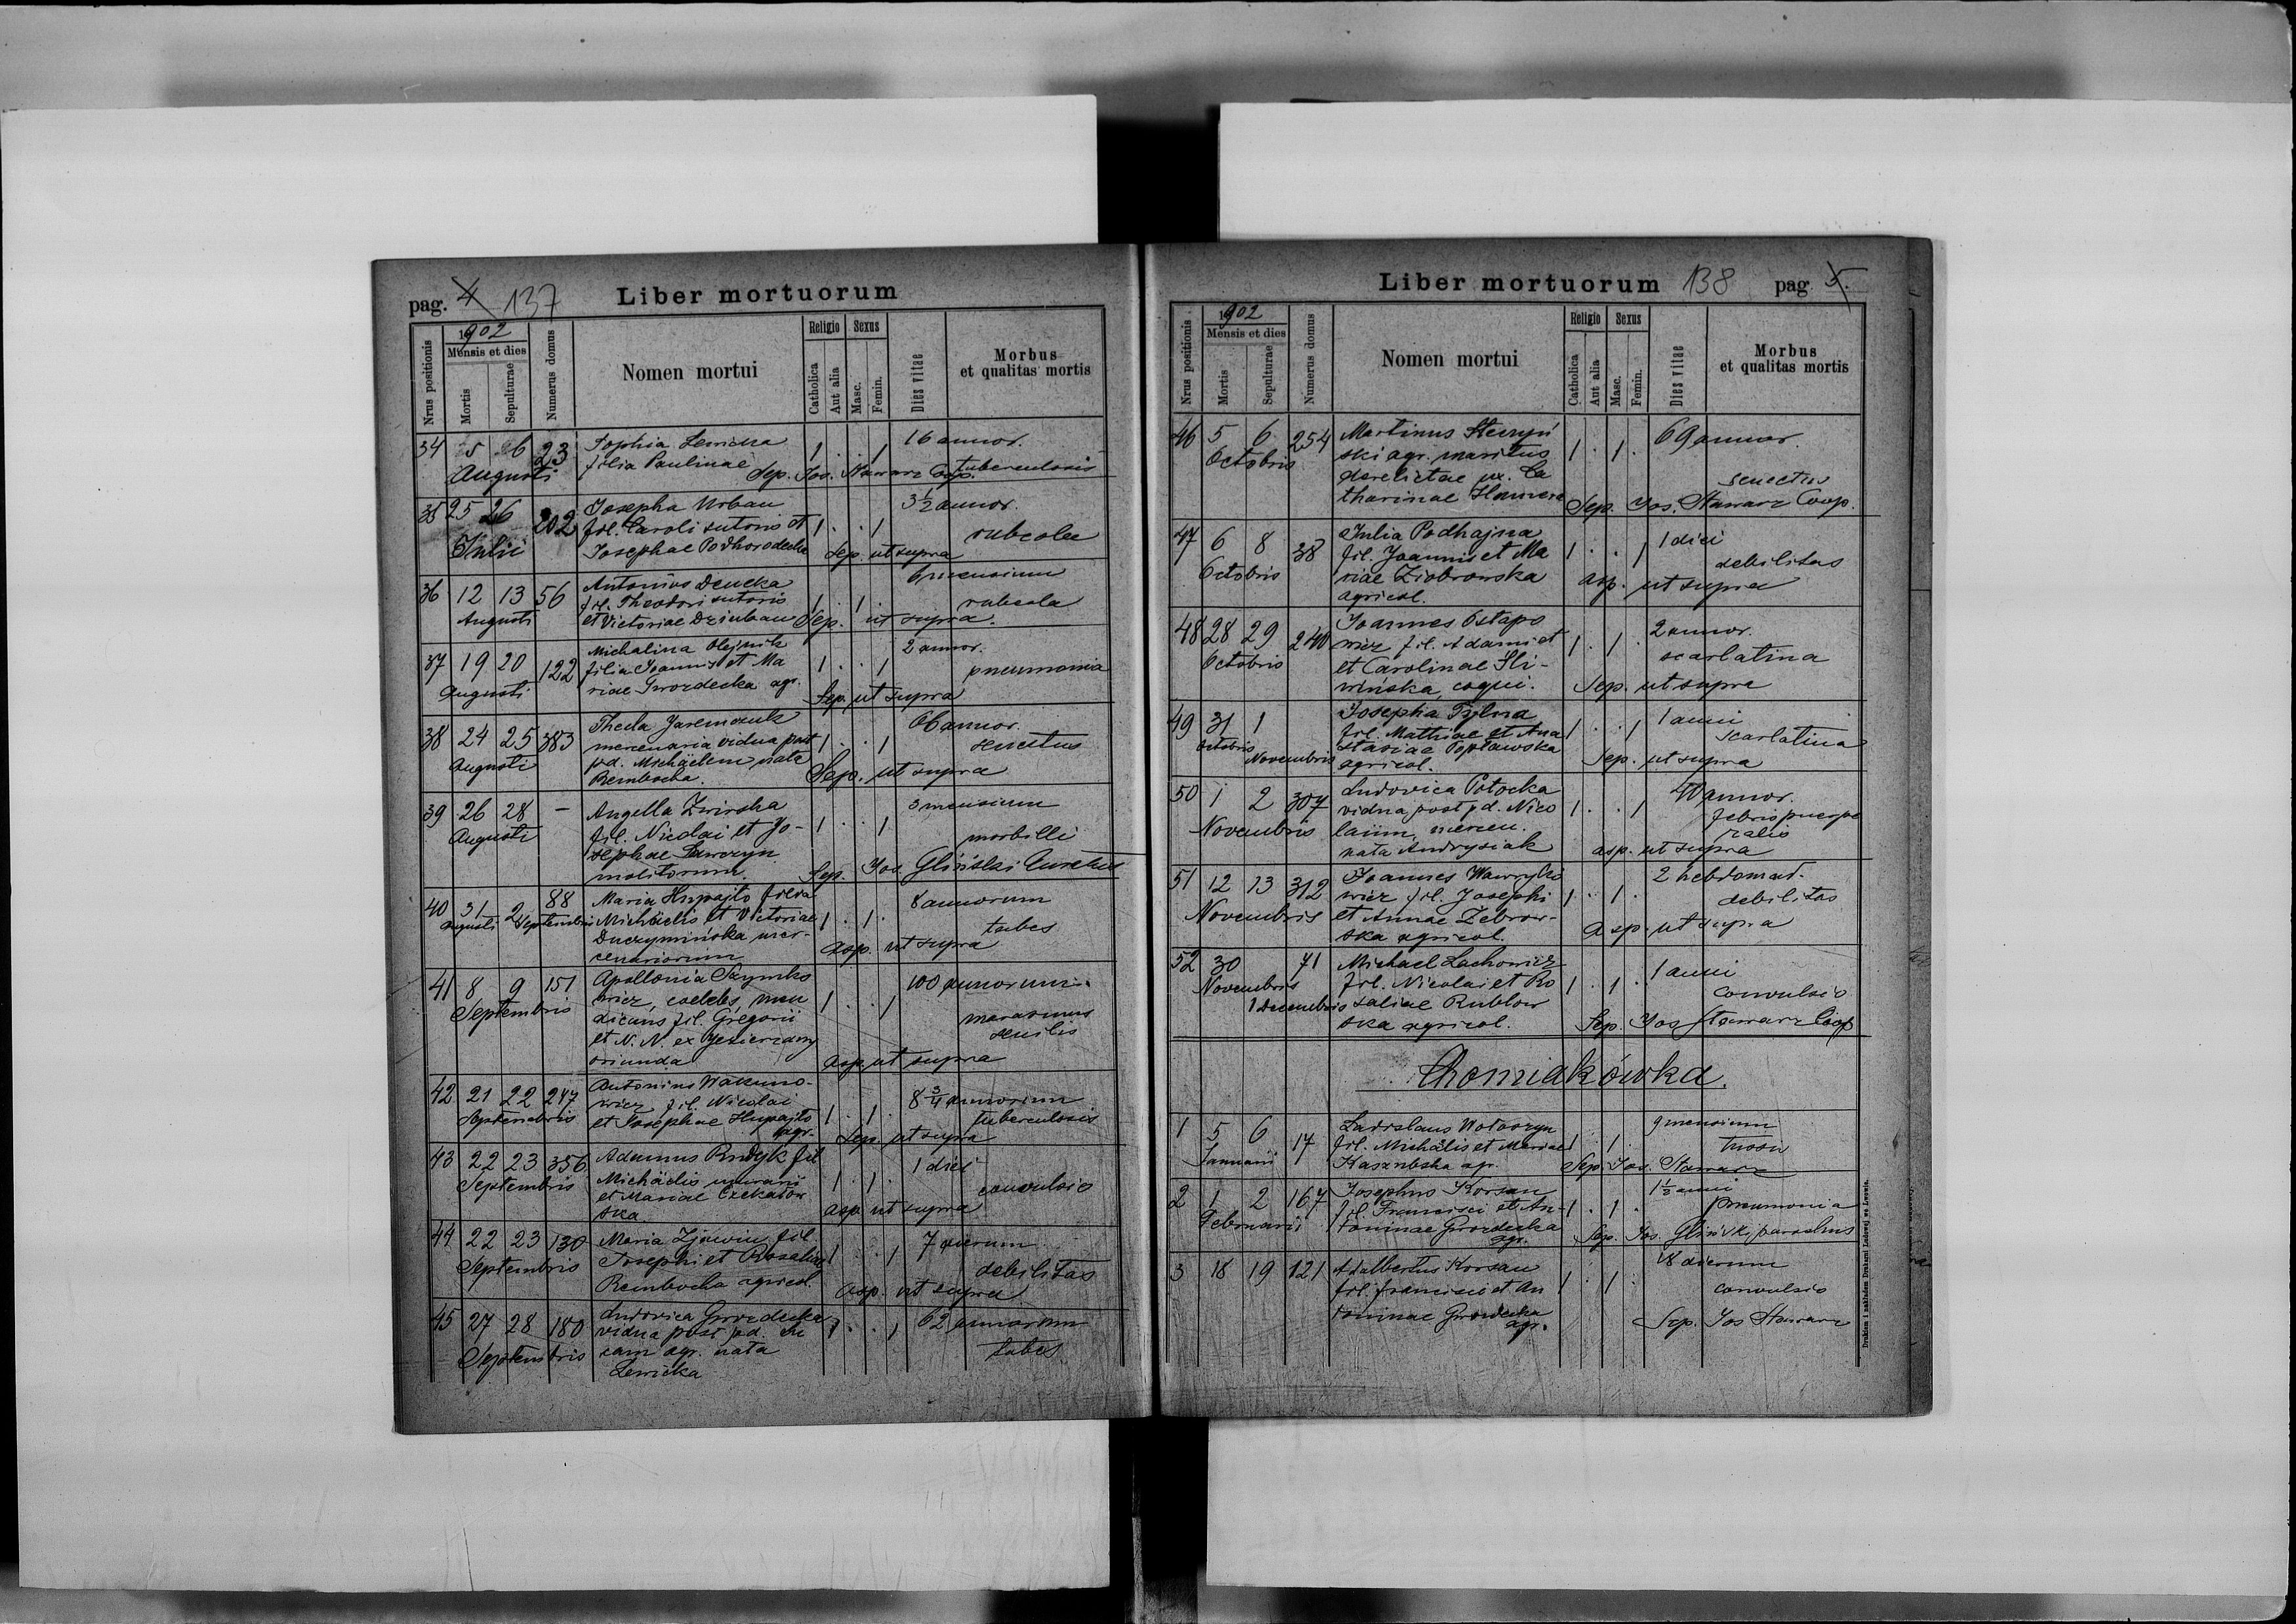 pag. 4 137 Liber mortuorum
Nrus positionis
1902
Mensis et dies
Mortis
Sepulturae
Numerus domus
Nomen mortui
Religio
Catholica
Aut alia
Sexus
Masc.
Femin.
Dies vitae
Morbus
et qualitas mortis
34 5 6 23 Sophia Lewicka 1 . . 1 16 annor.
Augusti filia Paulinae Sep. Jos. Stawarz Coop. tuberculosis
35 25 26 202 Josepha Urban 3 1/2 annor.
fil. Caroli sutoris et 1 . . 1 rubeolae
Julii Josephae Podhorodecka Sep. ut supra
36 12 13 56 Antonius Deneka 6 mensium
fil. Theodori sutoris 1 . 1 . rubeola
Augusti et Victoriae Dziuban Sep. ut supra.
37 19 20 122 Michalina Olejnik 2 annor.
filia Joannis et Ma 1 . . 1 pneumonia
Augusti riae Gwozdecka agr. Sep. ut supra
38 24 25 383 Thecla Jaremczuk 66 annor.
mercenaria vidua post 1 . . 1 senectus
Augusti pd. Michäelem nata
Rembocha. Sep. ut supra
39 26 28 — Angella Zwirska 3 mensium
Augusti fil. Nicolai et Jo- 1 . . 1 morbilli
sephae Ławczyn
molitorum. Sep. Jos. Gliński Curatus
40 31 2 88 Maria Hupajło filia 8 annorum
Augusti Septembris Michäelis et Victoriae 1 . 1 . tabes
Duczymińska mer-
cenariorum asp. ut supra
41 8 9 151 Apollonia Szymko 100 annorum.
Septembris wicz, coelebs, men 1 . . 1 marasmus
dicans fil. Gregorii senilis
et N. N. ex Jezierzany
oriunda asp. ut supra
42 21 22 247 Antonius Wakuno-
wicz fil. Nicolai 8 3/4 annorum
Septembris et Josephae Hupajło 1 . 1 . tuberculosis
agr. Sep. ut supra
43 22 23 356 Adamus Rudyk fil 1 diei
Septembris Michäelis 1 . 1 . convulsio
et Mariae Czekatow
ska asp. ut supra
44 22 23 130 Maria Zjawin fil. 7 dierum
Septembris Josephi et Rosaliae 1 . . 1 debilitas
Rembocha agricol. asp. ut supra
45 27 28 180 Ludovica Gwozdecka 62 annorum
vidua post pd. Lu 1 . . 1
Septembris cam agr. nata tabes
Lewicka
Liber mortuorum 138 pag 5.
Nrus positionis
1902
Mensis et dies
Mortis
Sepulturae
Numerus domus
Nomen mortui
Religio
Catholica
Aut alia
Sexus
Masc.
Femin.
Dies vitae
Morbus
et qualitas mortis
46 5 6 254 Martinus 69 annor.
Octobris ski agr. maritus 1 . 1 .
derelictae ux. Ca senectus
tharinae Sep. Jos. Stawarz Coop.
47 6 8 38 Julia Podhajna 1 diei
Octobris fil. Joannis et Ma 1 . . 1 debilitas
riae Ziobrowska asp. ut supra
agricol.
48 28 29 240 Joannes Ostapo 2 annor.
Octobris wicz fil. Adami et 1 . 1 . scarlatina
et Carolinae Sli-
wińska, coqui. Sep. ut supra
49 31 1 Josepha Tylna 1 anni
Octobris fil. Mathiae et Ana 1 . . 1 scarlatina
Novembris stasiae Popławska
agricol. Sep. ut supra
50 1 2 307 Ludovica Potocka 40 annor.
vidua post pd. Nico 1 . . 1 febris puerpe
Novembris laum, mercen. ralis
nata Andrysiak asp. ut supra
51 12 13 312 Joannes Wawryko 2 hebdomad.
wicz fil. Josephi 1 . 1 . debilitas
Novembris et Annae Zebrow-
ska agricol. asp. ut supra
52 30 71 Michael Lachowicz 1 anni
Novembris fil. Nicolai et Ro 1 . 1 . convulsio
1 Decembris saliae Rublow
ska agricol. Sep. Jos Stawarz Coop
Chomiakówka.
1 5 6 17 Ladislaus Wołoszyn 9 mensium
Januarii fil. Michälis et Mariae 1 . 1 . tussis
Kaszubska agr. Sep. Jos. Stawarz
2 1 2 167 Josephus Korsan 1 1/2 anni
Februarii fil. Francisci et An- 1 . 1 . pneumonia
toninae Gwozdecka
agr. Sep. Jos. Gliński parochus
3 18 19 121 Adalbertus Korsan 18 dierum
fil. Francisci et An 1 . 1 . convulsio
toninae Gwozdecka
agr. Sep. Jos Stawarz
Drukiem i nakładem Drukarni Ludowej we Lwowie.